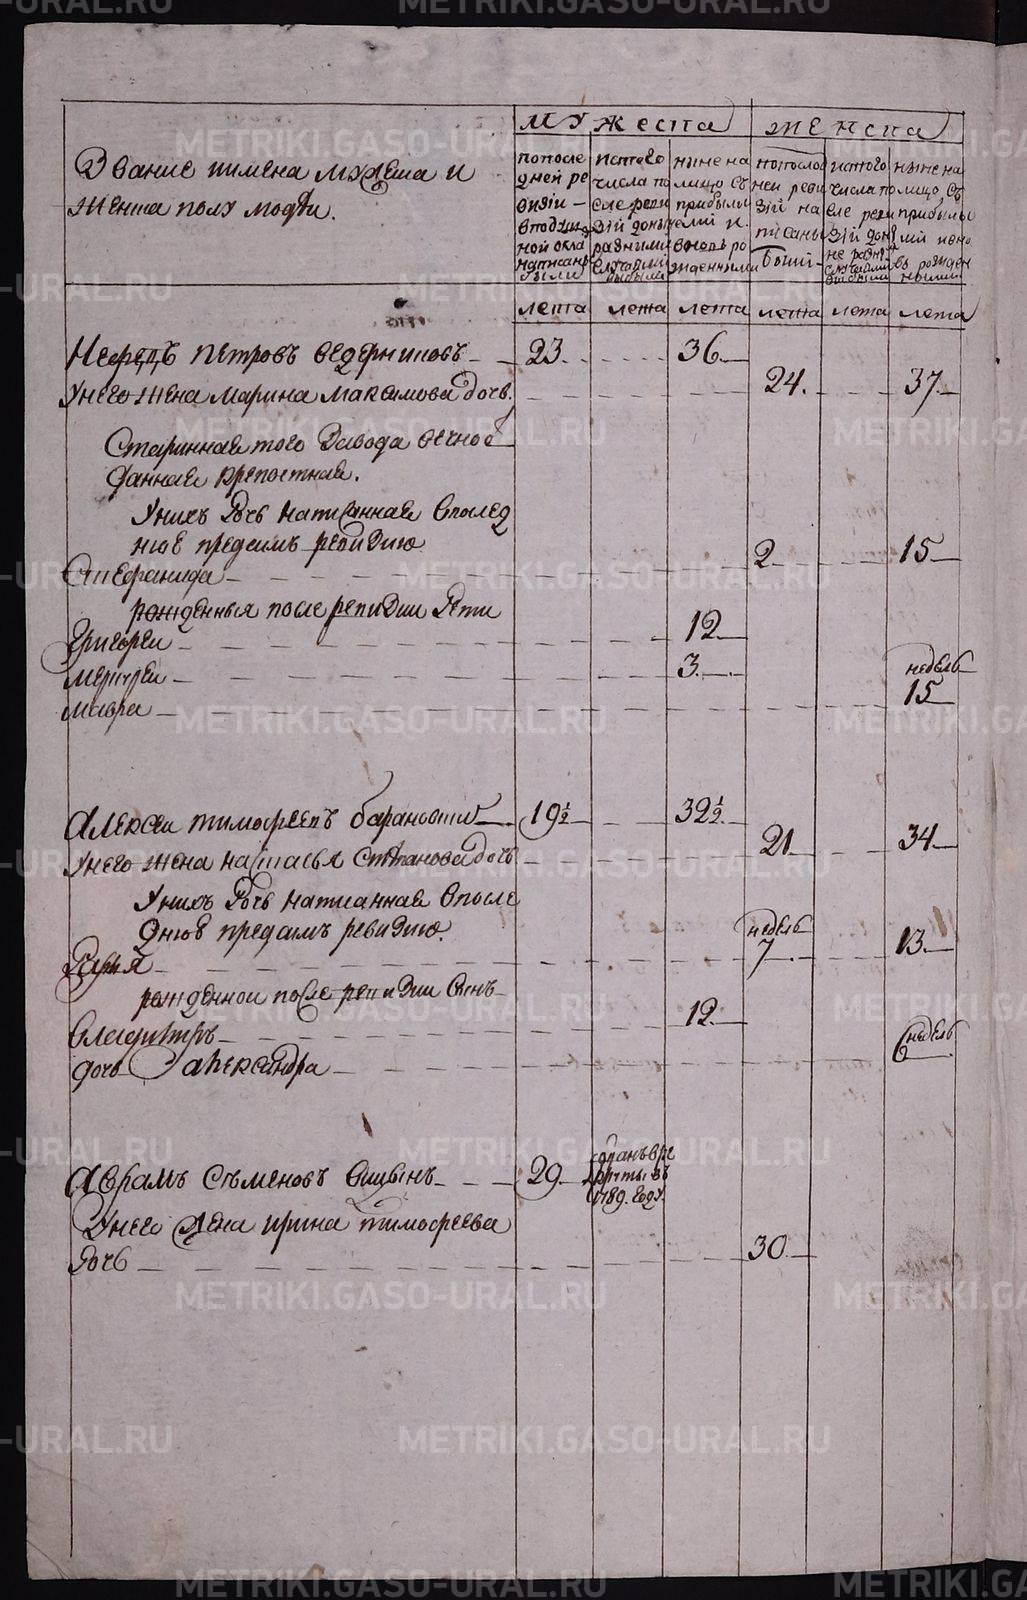 METRIKI.GASO-URAL.RU
мужеска
женска
Звание имена мужеска и
женска полу людей.
попосле
дней ре
визїи
вподуш
ной окла
написаны
были
изтого
числа по
сле реви
зїй доны
разными
случайми
выбыли
ныне на
лицо съ
прибылы
ми и
вновь ро
жденными
попослед
ней реви
зїй на
писаны
были
изтого
числа по
сле реви
зїй доны
не разны
случайми
выбыли
ныне на
лицо съ
прибылы
ми ивно
въ рожден
ными
лета лета лета лета лета лета
петровъ ведерниковъ 23. 36
унего жена марина максимова дочь. 24. 37
Стариннае того завода вечноо
даннае крепостнае.
Унихъ дочь написаннае впослед
нюе предсимъ ревизию
Степанида 2 15
рожденныя после ревизии дети
григореи 12
3.
мавра недель 15
алексеи тимофеевъ 19½ 32½
унего жена наталья степанова дочь 21 34
Унихъ дочь написаннае впосле
днюе предсимъ ревизию.
дарья недель 7 13
рожденнои после ревизии сынъ
владимиръ 12
дочь александра недель 6
аврамъ семеновъ 29 отданъ вре
круты въ
1789. году
Унего жена ирина тимофеева
дочь 30